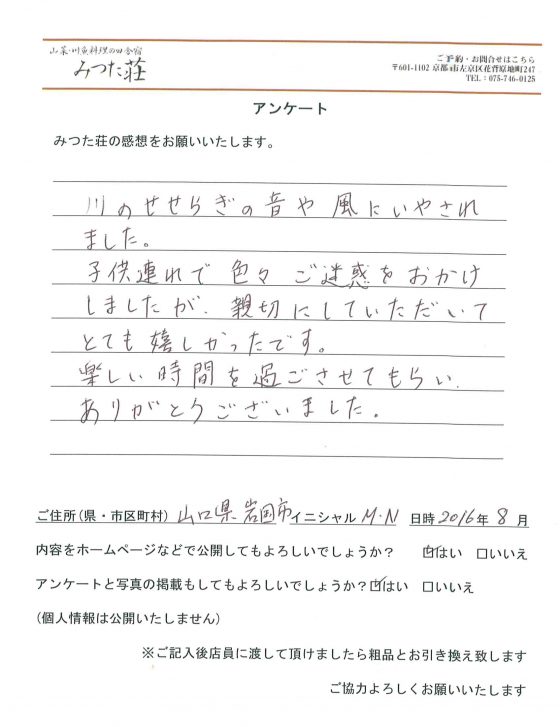 山菜・川魚料理の田舎宿
みつた荘
ご予約・お問合せはこちら
〒601-1102 京都市左京区花脊原地町247
TEL：075-746-0125
アンケート
みつた荘の感想をお願いいたします。
川のせせらぎの音や風にいやされ
ました。
子供連れで色々ご迷惑をおかけ
しましたが、親切にしていただいて
とても嬉しかったです。
楽しい時間を過ごさせてもらい、
ありがとうございました。
ご住所（県・市区町村） 山口県岩国市 イニシャル M・N 日時 2016年 8月
内容をホームページなどで公開してもよろしいでしょうか？ ☑はい □いいえ
アンケートと写真の掲載もしてもよろしいでしょうか？☑はい □いいえ
（個人情報は公開いたしません）
※ご記入後店員に渡して頂けましたら粗品とお引き換え致します
ご協力よろしくお願いいたします